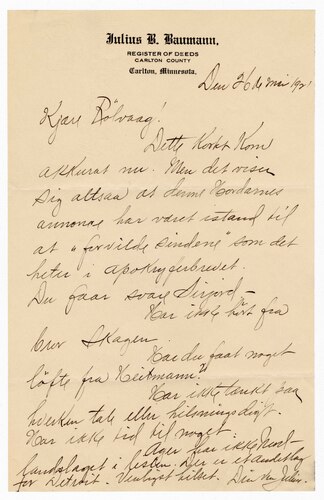 Julius B. Baumann,
REGISTER OF DEEDS
CARLTON COUNTY
Carlton, Minnesota.
Den 26de mai 192
Kjære Rölvaag!
Dette Kort Kom
akkurat nu. Men det viser
sig altsaa at denne Nordarnes
annonse har været istand til
at "forvilde sindene" som det
heter i apokryferbrevet.
Du faar svare Sirjord—
Har ikke hört fra
brev Skagen.
Har du faat noget
löfte fra Heitmann?
Har ikke tænkt paa
hverken tale eller hilsningsdigt.
Har ikke tid til noget.
Agter fra ikke
landslaget i festen. Der er et
for Detroit. Venligst hilset. Din